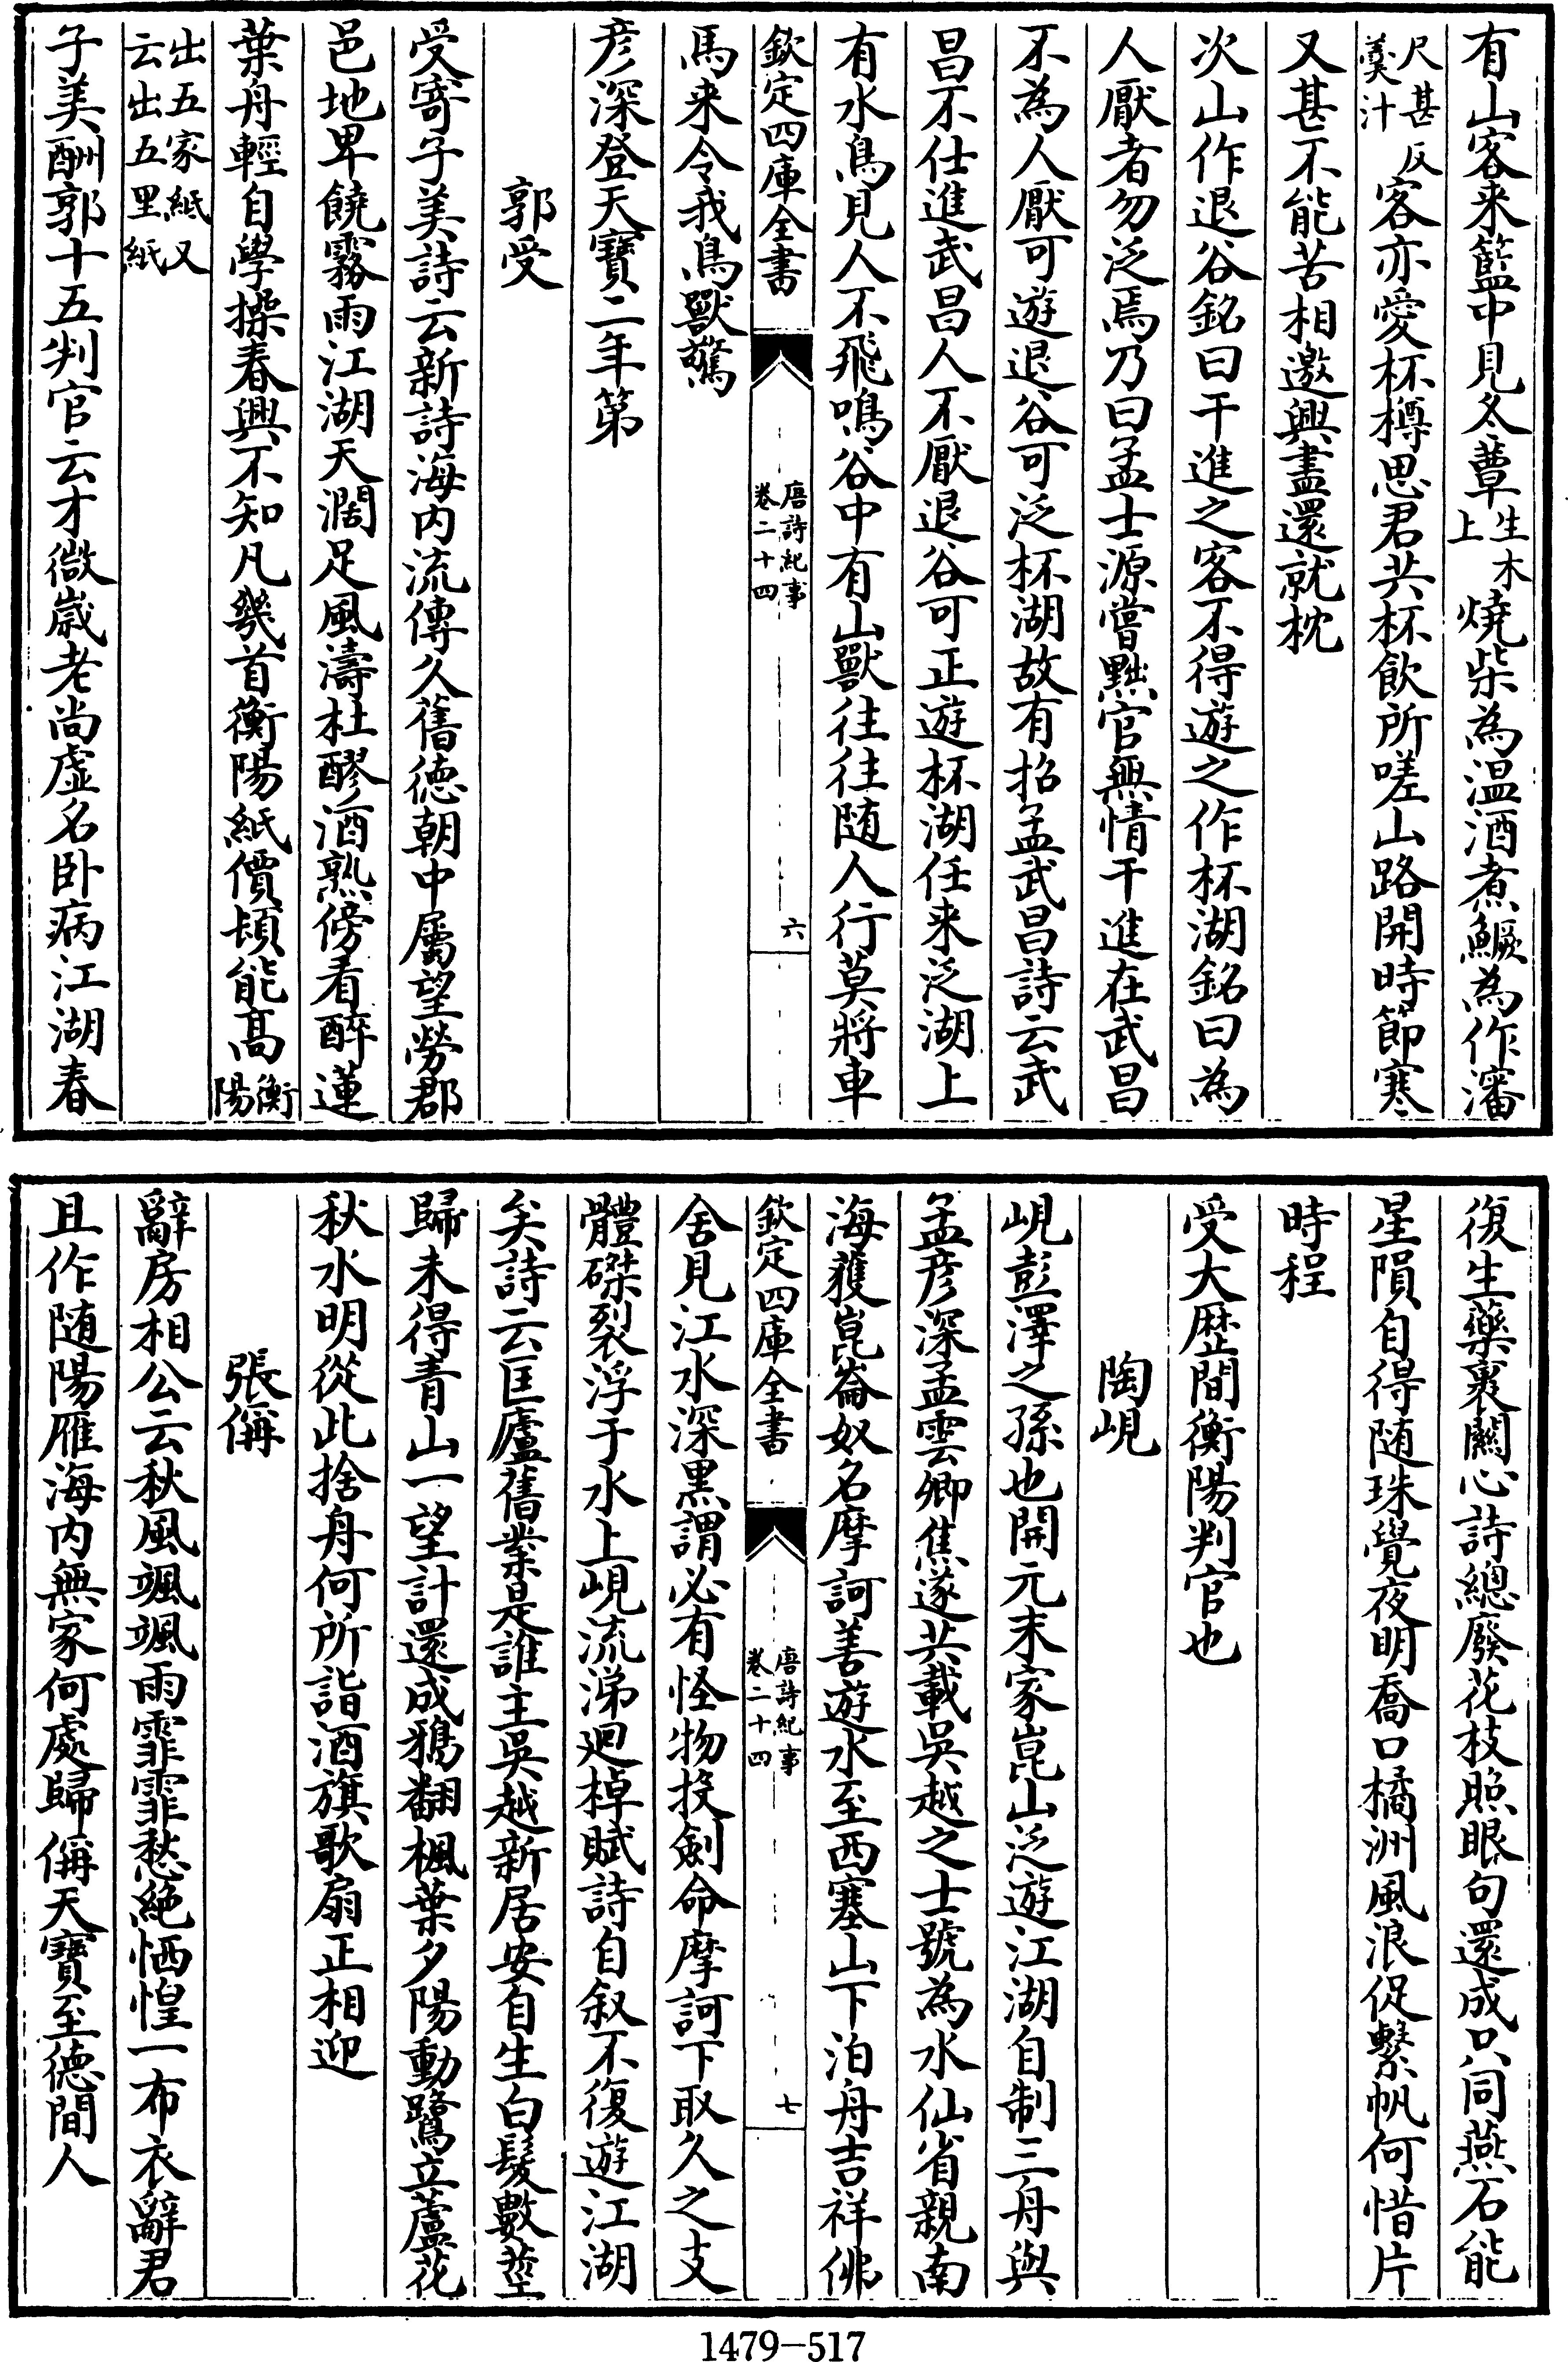 有山客来籃中見冬蕈生木上燒柴為温酒煮鱖為作瀋
尺甚反羮汁客亦愛杯樽思君共杯飲所嗟山路開時節寒
又甚不能苦相邀興盡還就枕
次山作退谷銘曰干進之客不得遊之作杯湖銘曰為
人厭者勿泛焉乃曰孟士源嘗黜官無情干進在武昌
不為人厭可遊退谷可泛杯湖故有招孟武昌詩云武
昌不仕進武昌人不厭退谷可正遊杯湖任来泛湖上
有水鳥見人不飛鳴谷中有山獸往往随人行莫將車
欽定四庫全書
唐詩紀事
卷二十四
六
馬来令我鳥獸驚
彦深登天寶二年第
郭受
受寄子美詩云新詩海内流傳久舊徳朝中屬望勞郡
邑地卑饒霧雨江湖天濶足風濤杜醪酒熟傍看醉蓮
葉舟輕自學操春興不知凡幾首衡陽紙價頓能髙衡陽
出五家紙又云出五里紙
子美酬郭十五判官云才微嵗老尚虚名卧病江湖春
復生藥裹關心詩總廢花枝照眼句還成只同燕石能
星隕自得随珠覺夜明喬口橘洲風浪促繫帆何惜片
時程
受大歴間衡陽判官也
陶峴
峴彭澤之孫也開元末家崑山泛遊江湖自制三舟與
孟彦深孟雲卿焦遂共載吳越之士號為水仙省親南
海獲崑崙奴名摩訶善遊水至西塞山下泊舟吉祥佛
欽定四庫全書
唐詩紀事
卷二十四
七
舍見江水深黒謂必有怪物投劍命摩訶下取久之支
體磔裂浮于水上峴流涕迴棹賦詩自叙不復遊江湖
矣詩云匡廬舊業是誰主吳越新居安自生白髮數莖
歸未得青山一望計還成鴉翻楓葉夕陽動鷺立蘆花
秋水明從此捨舟何所詣酒旗歌扇正相迎
張偁
辭房相公云秋風颯颯雨霏霏愁絶恓惶一布衣辭君
且作随陽雁海内無家何處歸偁天寶至徳間人
1479-517